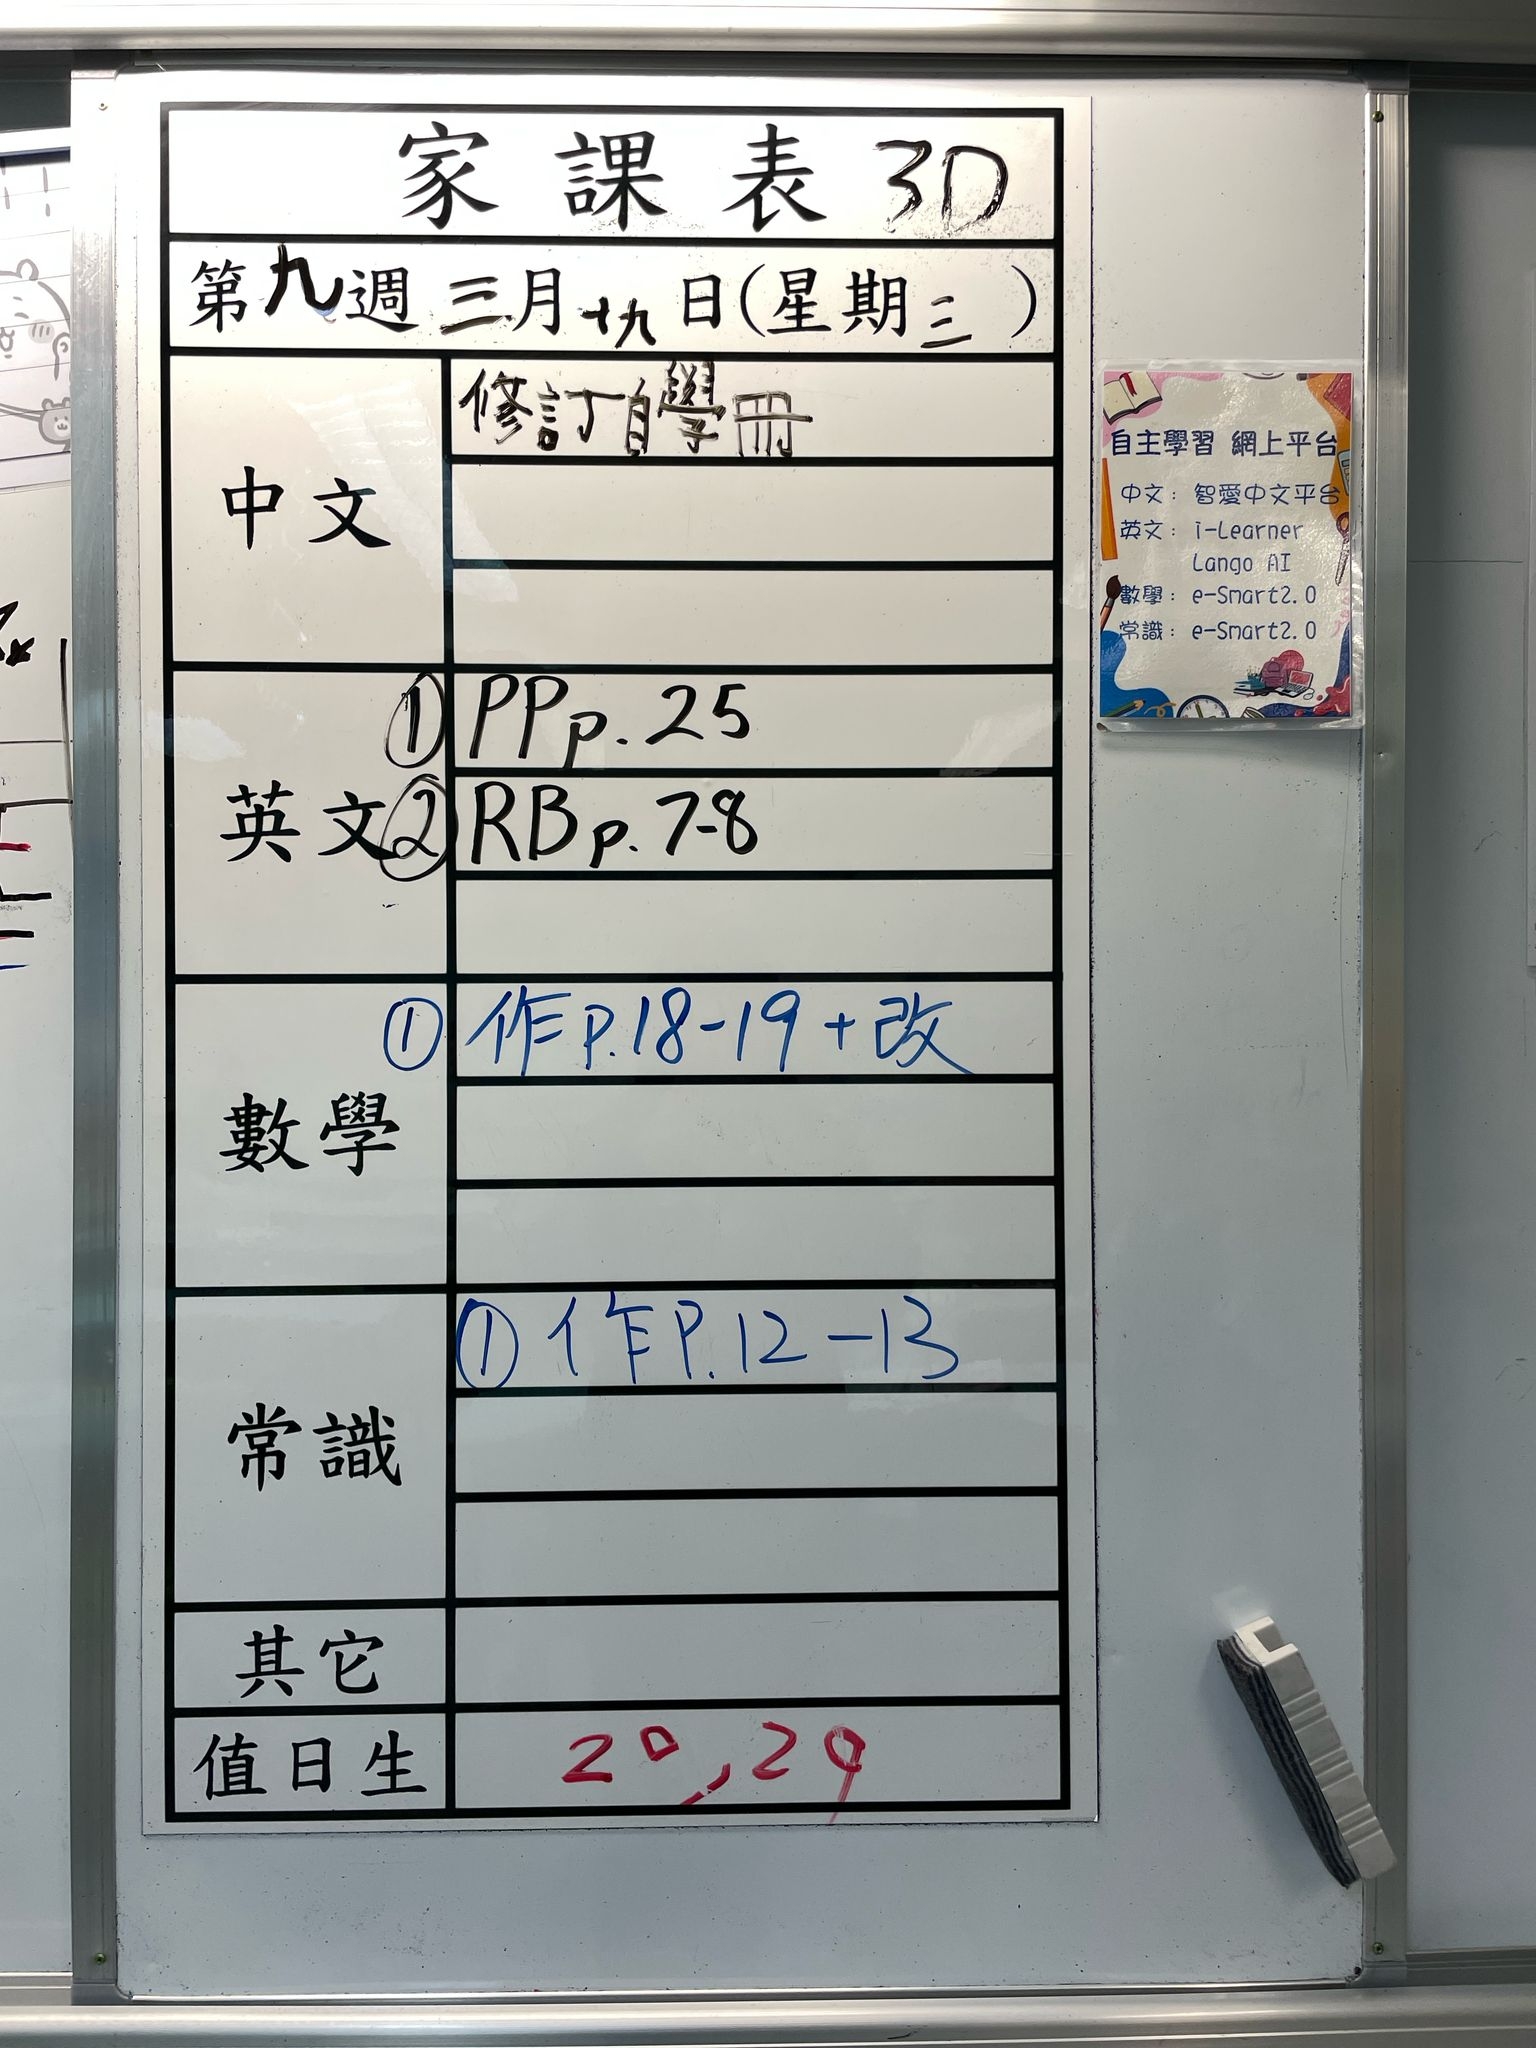 家課表 3D
第九週 三月十九日(星期三)
中文
修訂自學冊
英文
① PP p. 25
② RB p. 7-8
數學
① 作 p.18-19 + 改
常識
① 作 P.12-13
其它
值日生
20, 29
自主學習 網上平台
中文: 智愛中文平台
英文: i-Learner
Lango AI
數學: e-Smart2.0
常識: e-Smart2.0